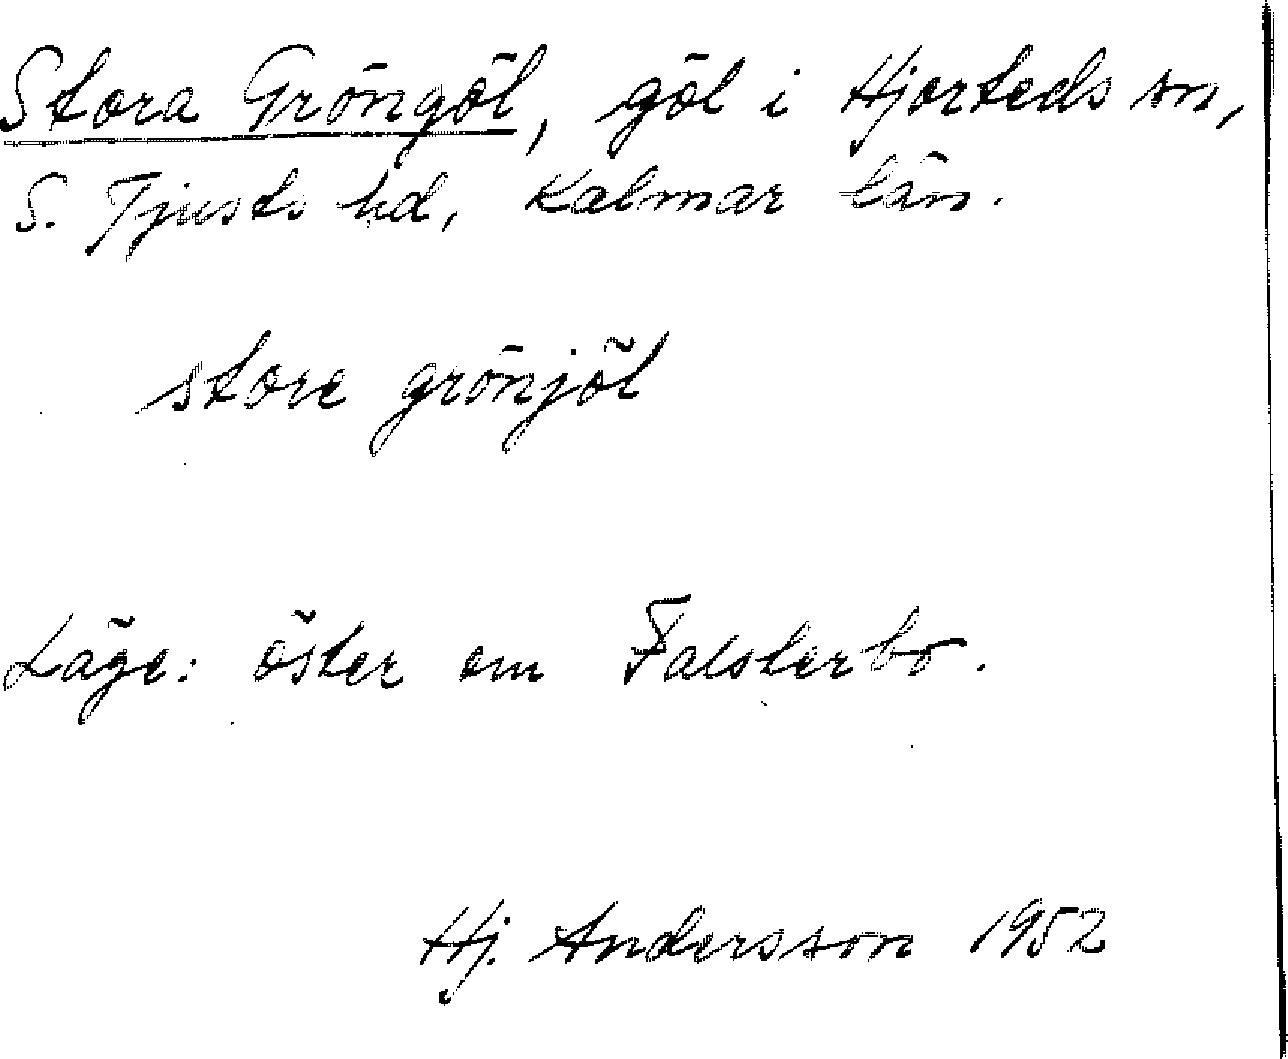 Stora Gröngöl, göl i Hjorteds sn,
S. Tjusts hd, Kalmar län.
store grönjöl
Läge: öster om Falsterbo.
Hj. Andersson 1952